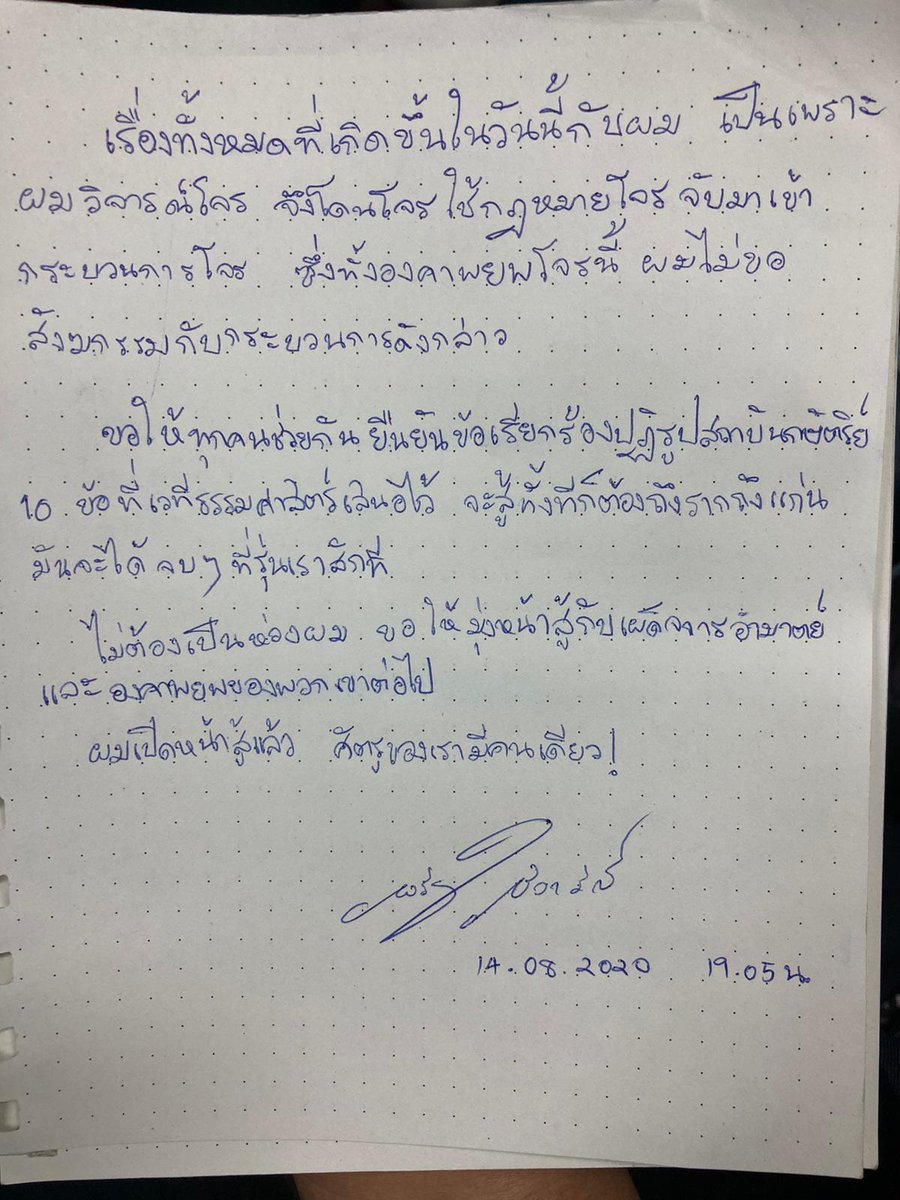 เรื่องทั้งหมดที่เกิดขึ้นในวันนี้กับผม เป็นเพราะ
ผมวิจารณ์โจร จึงโดนโจร ใช้กฎหมายโจร จับมาเข้า
กระบวนการโจร ซึ่งทั้งองคาพยพโจรนี้ ผมไม่ขอ
สังฆกรรมกับกระบวนการดังกล่าว
ขอให้ทุกคนช่วยกันยืนยันข้อเรียกร้องปฏิรูปสถาบันกษัตริย์
10 ข้อ ที่เวทีธรรมศาสตร์เสนอไว้ จะสู้ทั้งทีก็ต้องถึงรากถึงแก่น
มันจะได้ จบๆ ที่รุ่นเราสักที
ไม่ต้องเป็นห่วงผม ขอให้มุ่งหน้าสู้กับเผด็จการอำมาตย์
และองคาพยพของพวกเขาต่อไป
ผมเปิดหน้าสู้แล้ว ศัตรูของเรามีคนเดียว!
14.08.2020 19.05 น.